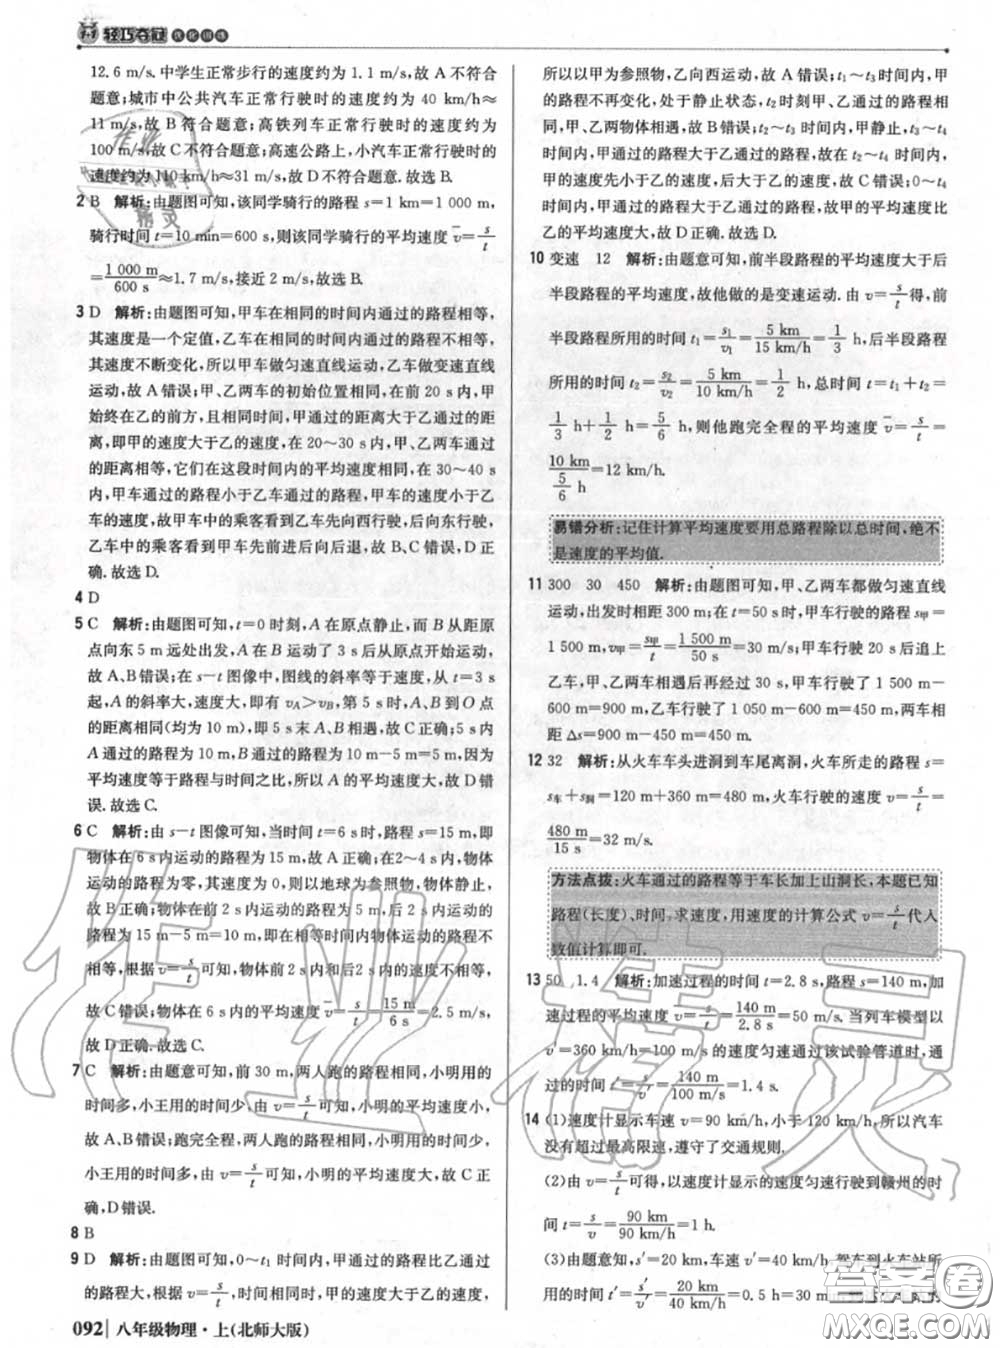 1+1 轻巧夺冠 优化训练
12.6 m/s. 中学生正常步行的速度约为 1.1 m/s,故 A 不符合
题意;城市中公共汽车正常行驶时的速度约为 40 km/h≈
11 m/s,故 B 符合题意;高铁列车正常行驶时的速度约为
100 m/s,故 C 不符合题意;高速公路上,小汽车正常行驶时
的速度约为 110 km/h≈31 m/s,故 D 不符合题意.故选 B.
2 B 解析:由题图可知,该同学骑行的路程 s=1 km=1 000 m,
骑行时间 t=10 min=600 s,则该同学骑行的平均速度 v̄=s/t
=1 000 m/600 s≈1.7 m/s,接近 2 m/s.故选 B.
3 D 解析:由题图可知,甲车在相同的时间内通过的路程相等,
其速度是一个定值,乙车在相同的时间内通过的路程不相等,
其速度不断变化,所以甲车做匀速直线运动,乙车做变速直线
运动,故 A 错误;甲、乙两车的初始位置相同,在 10 s 内,甲车
始终在乙的前方,且相同时间,甲通过的距离大于乙的距离,
即甲的速度大于乙的速度,在 20～30 s 内,甲、乙两车通过
的距离相等,在这个时间内的平均速度相同,在 30～40 s
内,甲车行驶的路程小于乙车行驶的路程,甲车的速度小于乙
车的速度,故甲车中的乘客看到乙车先向西行驶,后向东行驶,
乙车中的乘客看到甲车先前进后向后行驶,故 B、C 错误,D
正确.故选 D.
4 D
5 C 解析:由题图可知,t=0 时刻,A 在原点静止,而 B 从距原
点向东 5 m 远处出发,A 等 B 运动了 3 s 后从原点开始运动,
故 A、B 错误;在 s-t 图像中,图线的斜率等于速度,从 t=3 s
起,A 的斜率大,速度大,即有 vA>vB,第 5 s 时,A、B 到 O 点
的距离相同(均为 10 m),即 5 s 末两者相遇,故 C 正确;5 s 内
A 通过的路程为 10 m,B 通过的路程为 10 m-5 m=5 m,因为
平均速度等于路程与时间之比,所以 A 平均速度大,故 D 错
误.故选 C.
6 C 解析:由 s-t 图像可知,当时间 t=6 s 时,路程 s=15 m,即
物体在 6 s 内运动的路程为 15 m,故 A 正确;在 2～4 s 内,物体
运动的路程为零,即物体静止,所以以地球为参照物,物体静
止,故 B 正确;物体在前 2 s 内运动的路程为 5 m,在后 2 s 内
运动的路程为 15 m-5 m=10 m,相等时间内物体运动的路程不
相等,根据 v=s/t 可知,物体前 2 s 内和后 2 s 内的速度不相等,
故 C 错误;物体在 6 s 内的平均速度为 v̄=s/t=15 m/6 s=2.5 m/s,
故 D 正确.故选 C.
7 C 解析:由题意可知,前 30 m,两人跑的路程相等,小明用的
时间多,小王用的时间少,由 v=s/t 可知,小明的平均速度小,
故 A、B 错误;全程,两人跑的路程相等,小明用的时间少,
小王用的时间多,由 v=s/t 可知,小明的平均速度大,故 C 正
确,D 错误.
8 B
9 D 解析:由题图可知,0～t1 时间内,甲通过的路程比乙通过
的路程大,根据 v=s/t 可知,甲的速度大于乙的速度,
所以以甲为参照物,乙向西运动,故 A 错误;t1～t3 时间内,甲
的路程不再变化,处于静止状态,t2 时刻甲、乙通过的路程相
等,所以甲、乙两物体相遇,故 B 错误;t2～t3 时间内,甲静止,乙
的速度大于甲的速度,故 C 错误;0～t3 时间内,甲的
速度先小于乙的速度,后大于乙的速度,故 C 错误;0～t3 时
间内,甲通过的路程小于乙通过的路程,故甲的平均速度比
乙的平均速度大,故 D 正确.故选 D.
10 变速 12 解析:由题意可知,前半段路程的平均速度大于后
半段路程的平均速度,故他做的是变速运动. 由 v=s/t 得,前
半段路程所用的时间 t1=s1/v1=5 km/15 km/h=1/3 h,后半段路程
所用的时间 t2=s2/v2=5 km/10 km/h=1/2 h,总时间 t=t1+t2=
1/3 h+1/2 h=5/6 h,则他跑完全程的平均速度 v̄=s/t=
10 km/(5/6 h)=12 km/h.
易错分析:记住计算平均速度要用总路程除以总时间,绝不
是速度的平均值.
11 300 30 450 解析:由题图可知,甲、乙两车都做匀速直线
运动,出发时相距 300 m;在 t=50 s 时,甲车行驶的路程 s甲=
1 500 m,v甲=s甲/t=1 500 m/50 s=30 m/s;甲车行驶 20 s 后追上
乙车,甲、乙两车相遇后再经过 30 s,甲车行驶了 1 500 m-
600 m=900 m,乙车行驶了 1 050 m-600 m=450 m,两车
相距 Δs=900 m-450 m=450 m.
12 32 解析:从火车车头进洞到车尾离洞,火车所走的路程 s=
s车+s洞=120 m+360 m=480 m,火车行驶的速度 v=s/t=
480 m/15 s=32 m/s.
方法点拨:火车通过的路程等于车长加上山洞长,本题已知
路程(长度)、时间,求速度,用速度的计算公式 v=s/t 代入
数值计算即可.
13 50 1.4 解析:加速过程的时间 t=2.8 s,路程 s=140 m,加
速过程的平均速度 v=s/t=140 m/2.8 s=50 m/s. 当列车模型以
v′=360 km/h=100 m/s 的速度匀速通过该试验管道时,通
过的时间 t′=s/v′=140 m/100 m/s=1.4 s.
14 (1)速度计显示车速 v=90 km/h,小于 120 km/h,所以汽车
没有超过最高限速,遵守了交通规则.
(2)由 v=s/t 可得,以速度计显示的速度行驶到赣州的时
间 t=s/v=90 km/90 km/h=1 h.
(3)由题意知,s′=20 km,车速 v=40 km/h,驾车到火车站所
用的时间 t′=s′/v′=20 km/40 km/h
092 八年级物理·上(北师大版)
作业精灵
答案圈